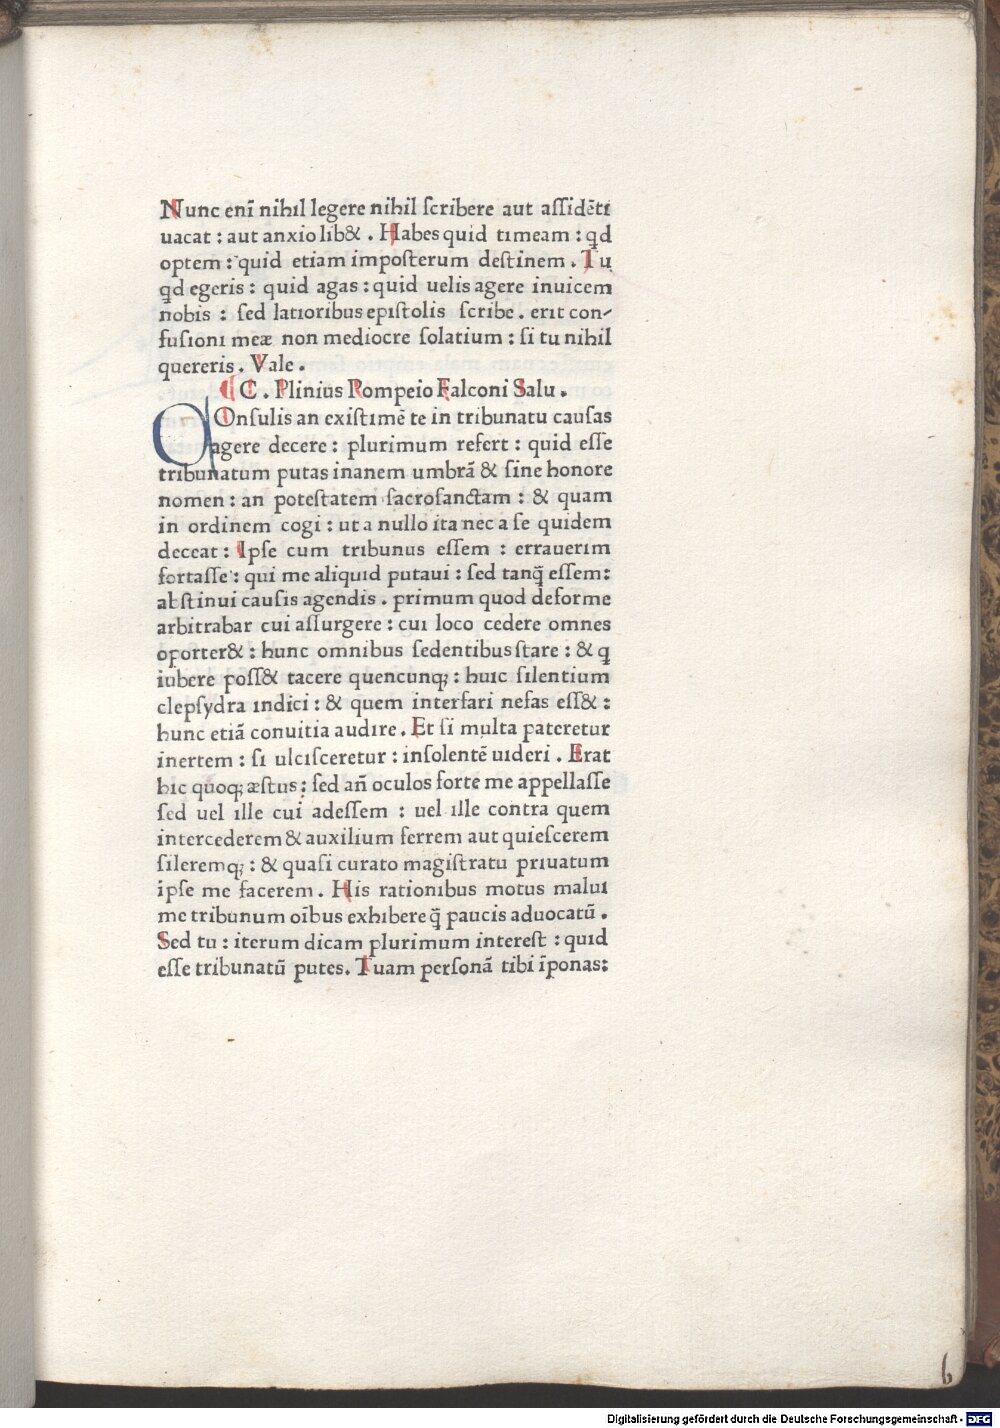 Nunc enī nihil legere nihil ſcribere aut aſſidēti
uacat : aut anxio lib& . Habes quid timeam : qd
optem : quid etiam impoſterum deſtinem . Tu
qd egeris : quid agas : quid uelis agere inuicem
nobis : ſed latioribus epiſtolis ſcribe . erit con-
fuſioni meæ non mediocre ſolatium : ſi tu nihil
quereris . Vale .
C . Plinius Pompeio Falconi Salu .
COnſulis an exiſtimē te in tribunatu cauſas
agere decere : plurimum refert : quid eſſe
tribunatum putas inanem umbrā & ſine honore
nomen : an poteſtatem ſacroſanctam : & quam
in ordinem cogi : ut a nullo ita nec a ſe quidem
deceat : Ipſe cum tribunus eſſem : errauerim
fortaſſe : qui me aliquid putaui : ſed tanq̄ eſſem :
abſtinui cauſis agendis . primum quod deforme
arbitrabar cui aſſurgere : cui loco cedere omnes
oporter& : hunc omnibus ſedentibus ſtare : & q
iubere poſſ& tacere quencunq; : huic ſilentium
clepſydra indici : & quem interfari nefas eſſ& :
hunc etiā conuitia audire . Et ſi multa pateretur
inertem : ſi ulciſceretur : inſolentē uideri . Erat
hic quoq; æſtus : ſed an̄ oculos forte me appellaſſe
ſed uel ille cui adeſſem : uel ille contra quem
intercederem & auxilium ferrem aut quieſcerem
ſileremq; : & quaſi curato magiſtratu priuatum
ipſe me facerem . His rationibus motus malui
me tribunum oībus exhibere q̄ paucis aduocatū .
Sed tu : iterum dicam plurimum intereſt : quid
eſſe tribunatū putes . Tuam perſonā tibi īponas :
b
Digitalisierung gefördert durch die Deutsche Forschungsgemeinschaft - DFG